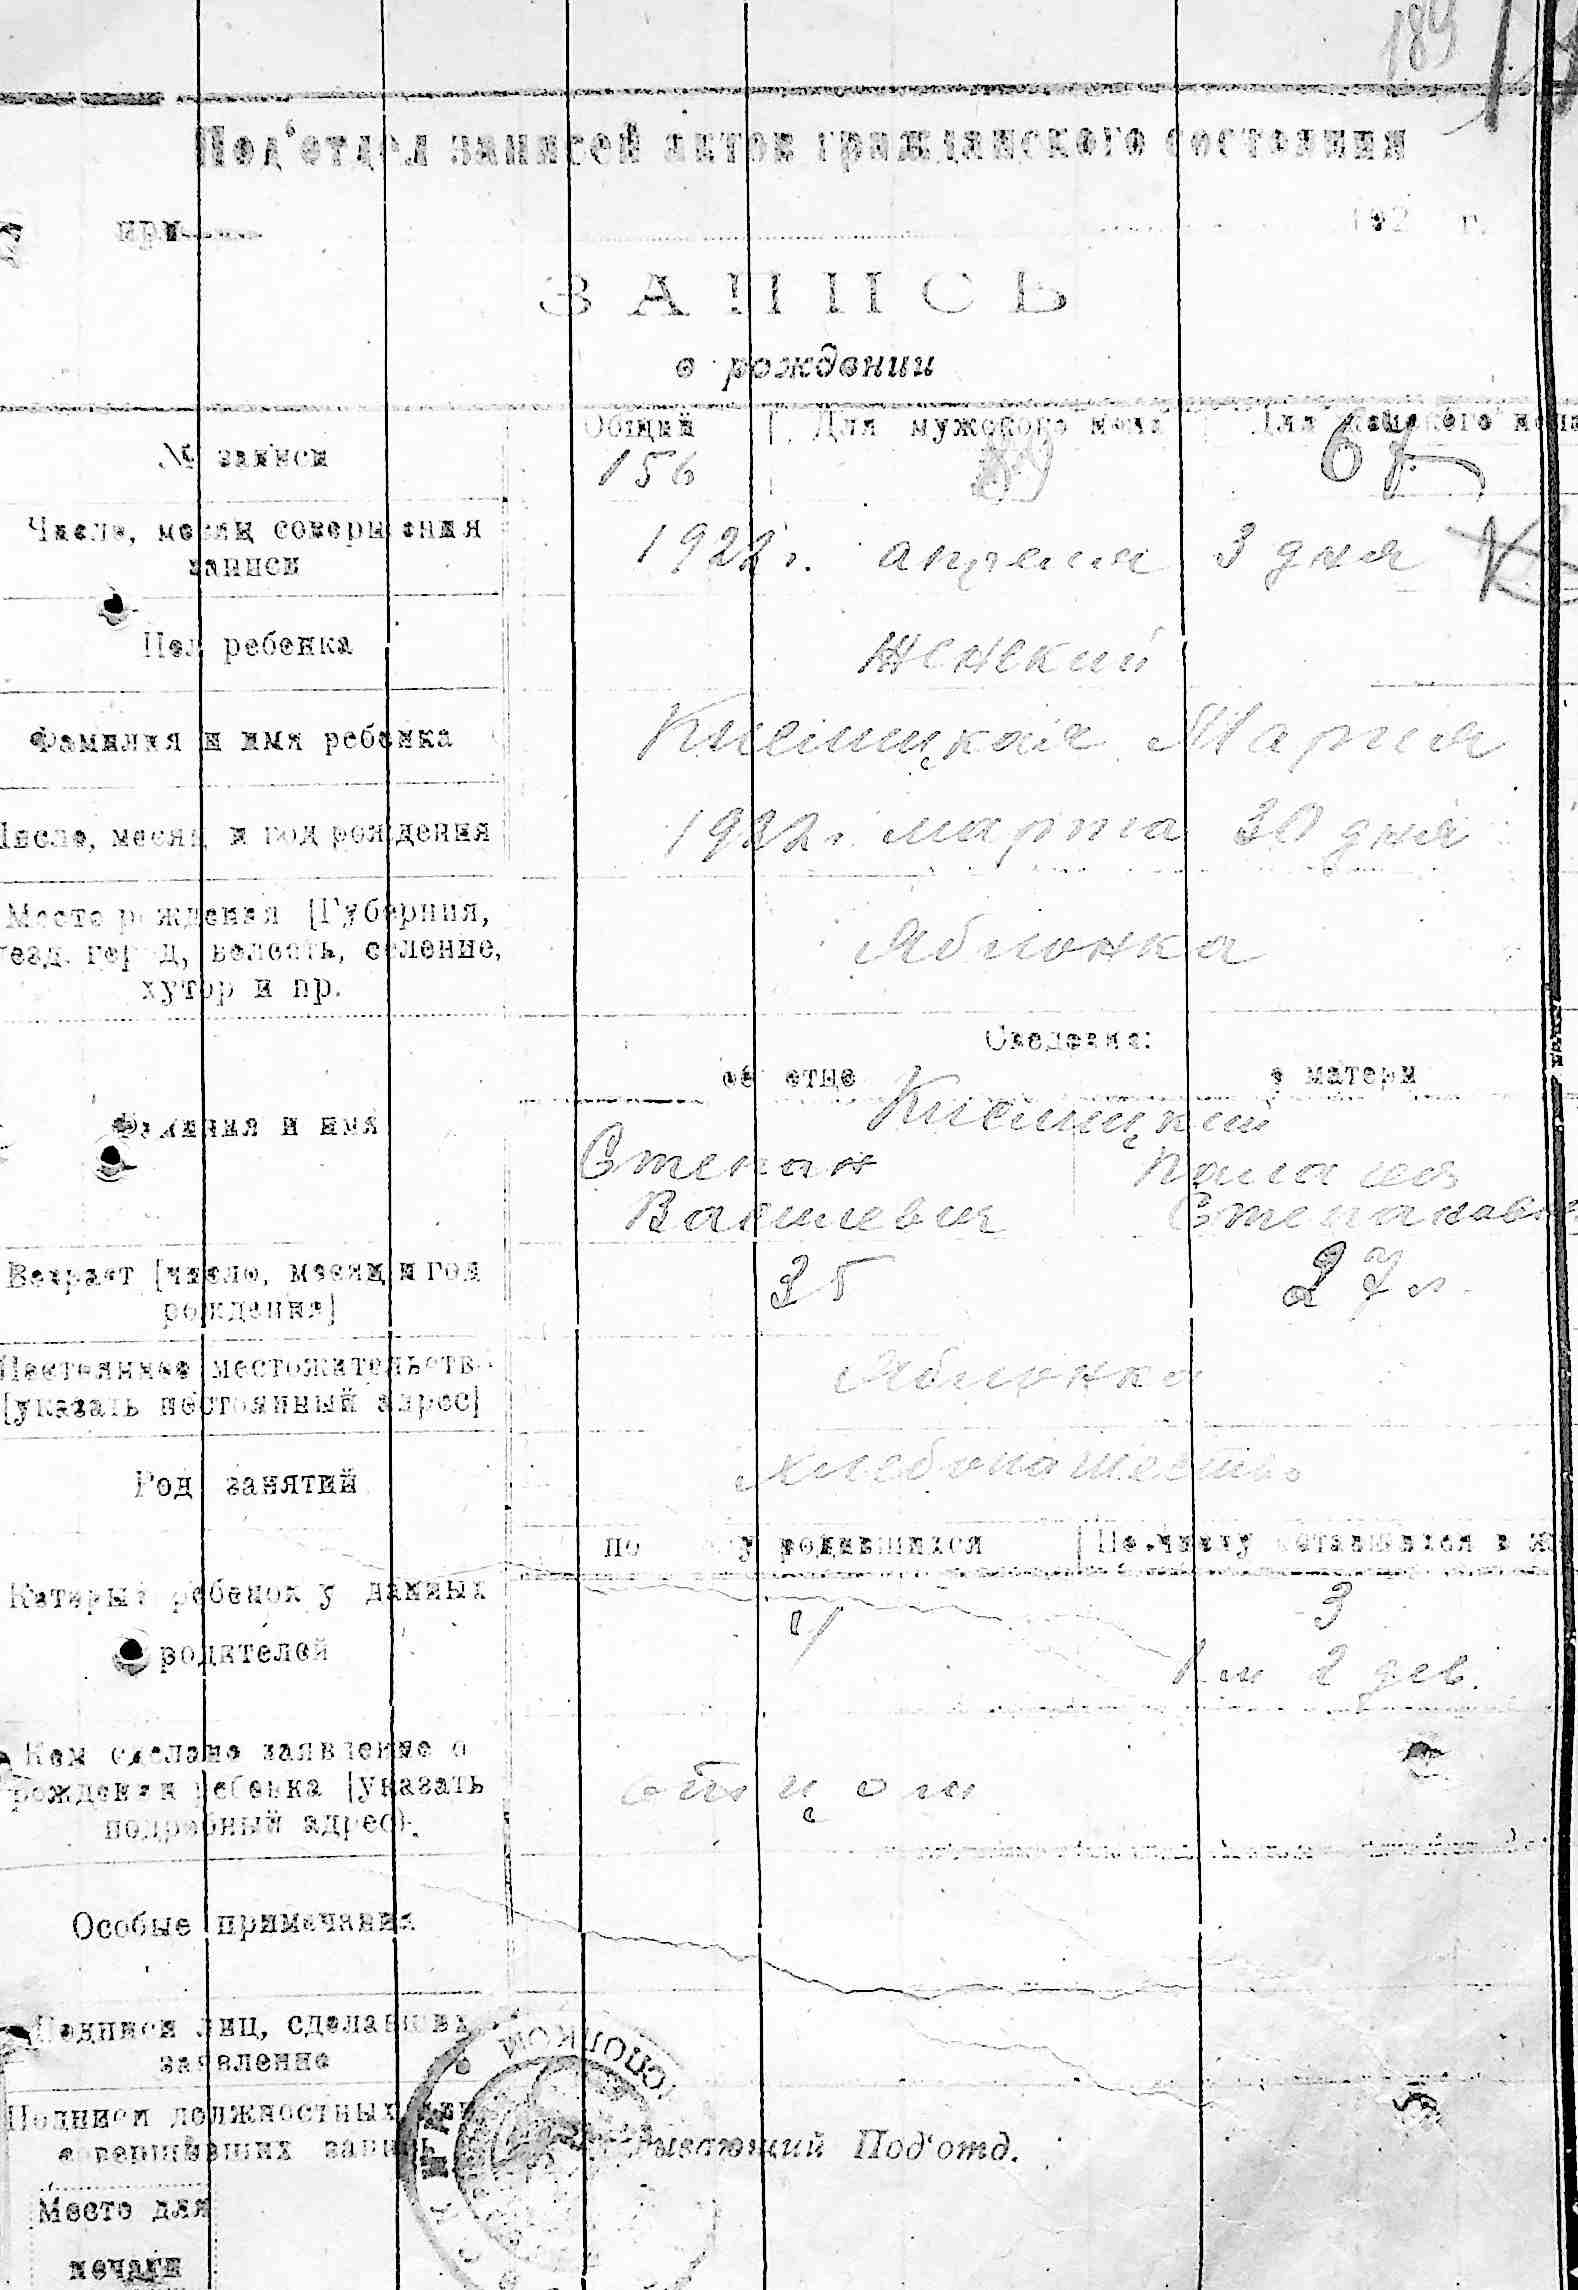 189
Под'отдел записей актов гражданского состояния
при 192 г.
ЗАПИСЬ
о рождении
Общий Для мужского пола Для женского пола
№ записи 156 89 67
Число, месяц соверш ения 1922 г. апреля 3 дня
записи
Пол ребенка Женский
Фамилия и имя ребенка Мария
Число, месяц и год рождения 1922 г. марта 30 дня
Место рождения [Губерния,
уезд, город, волость, селение, Яблонка
хутор и пр.
Сведения:
об отце о матери
Фамилия и имя
Степан
Степановна
Возраст [число, месяц и год 35 27 л.
рождения]
Постоянное местожительство Яблонка
[указать постоянный адрес]
Род занятий хлебопашество
по у родившихся По числу оставшихся в ж
Который ребенок у данных 4 3
родителей 1 м 2 дев.
Кем сделано заявление о
рождении ребенка [указать отцом
подробный адрес].
Особые примечания
Подписи лиц, сделавших
заявление
Подписи должностных лиц,
совершивших запись Под'отд.
Место для
печати